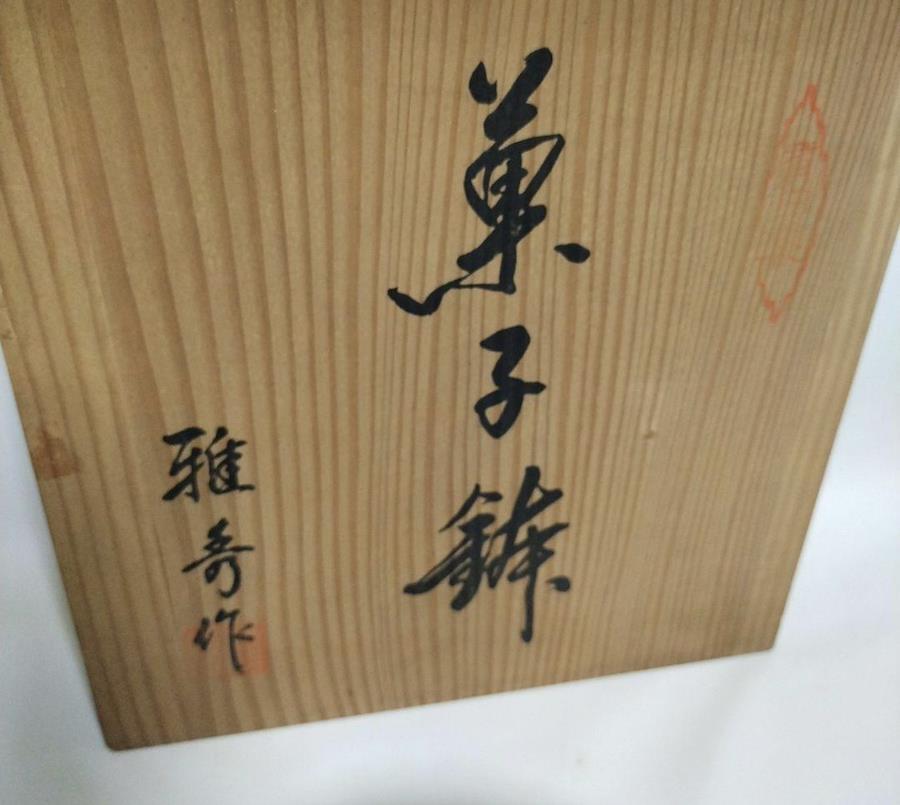 菓子鉢
雅秀作